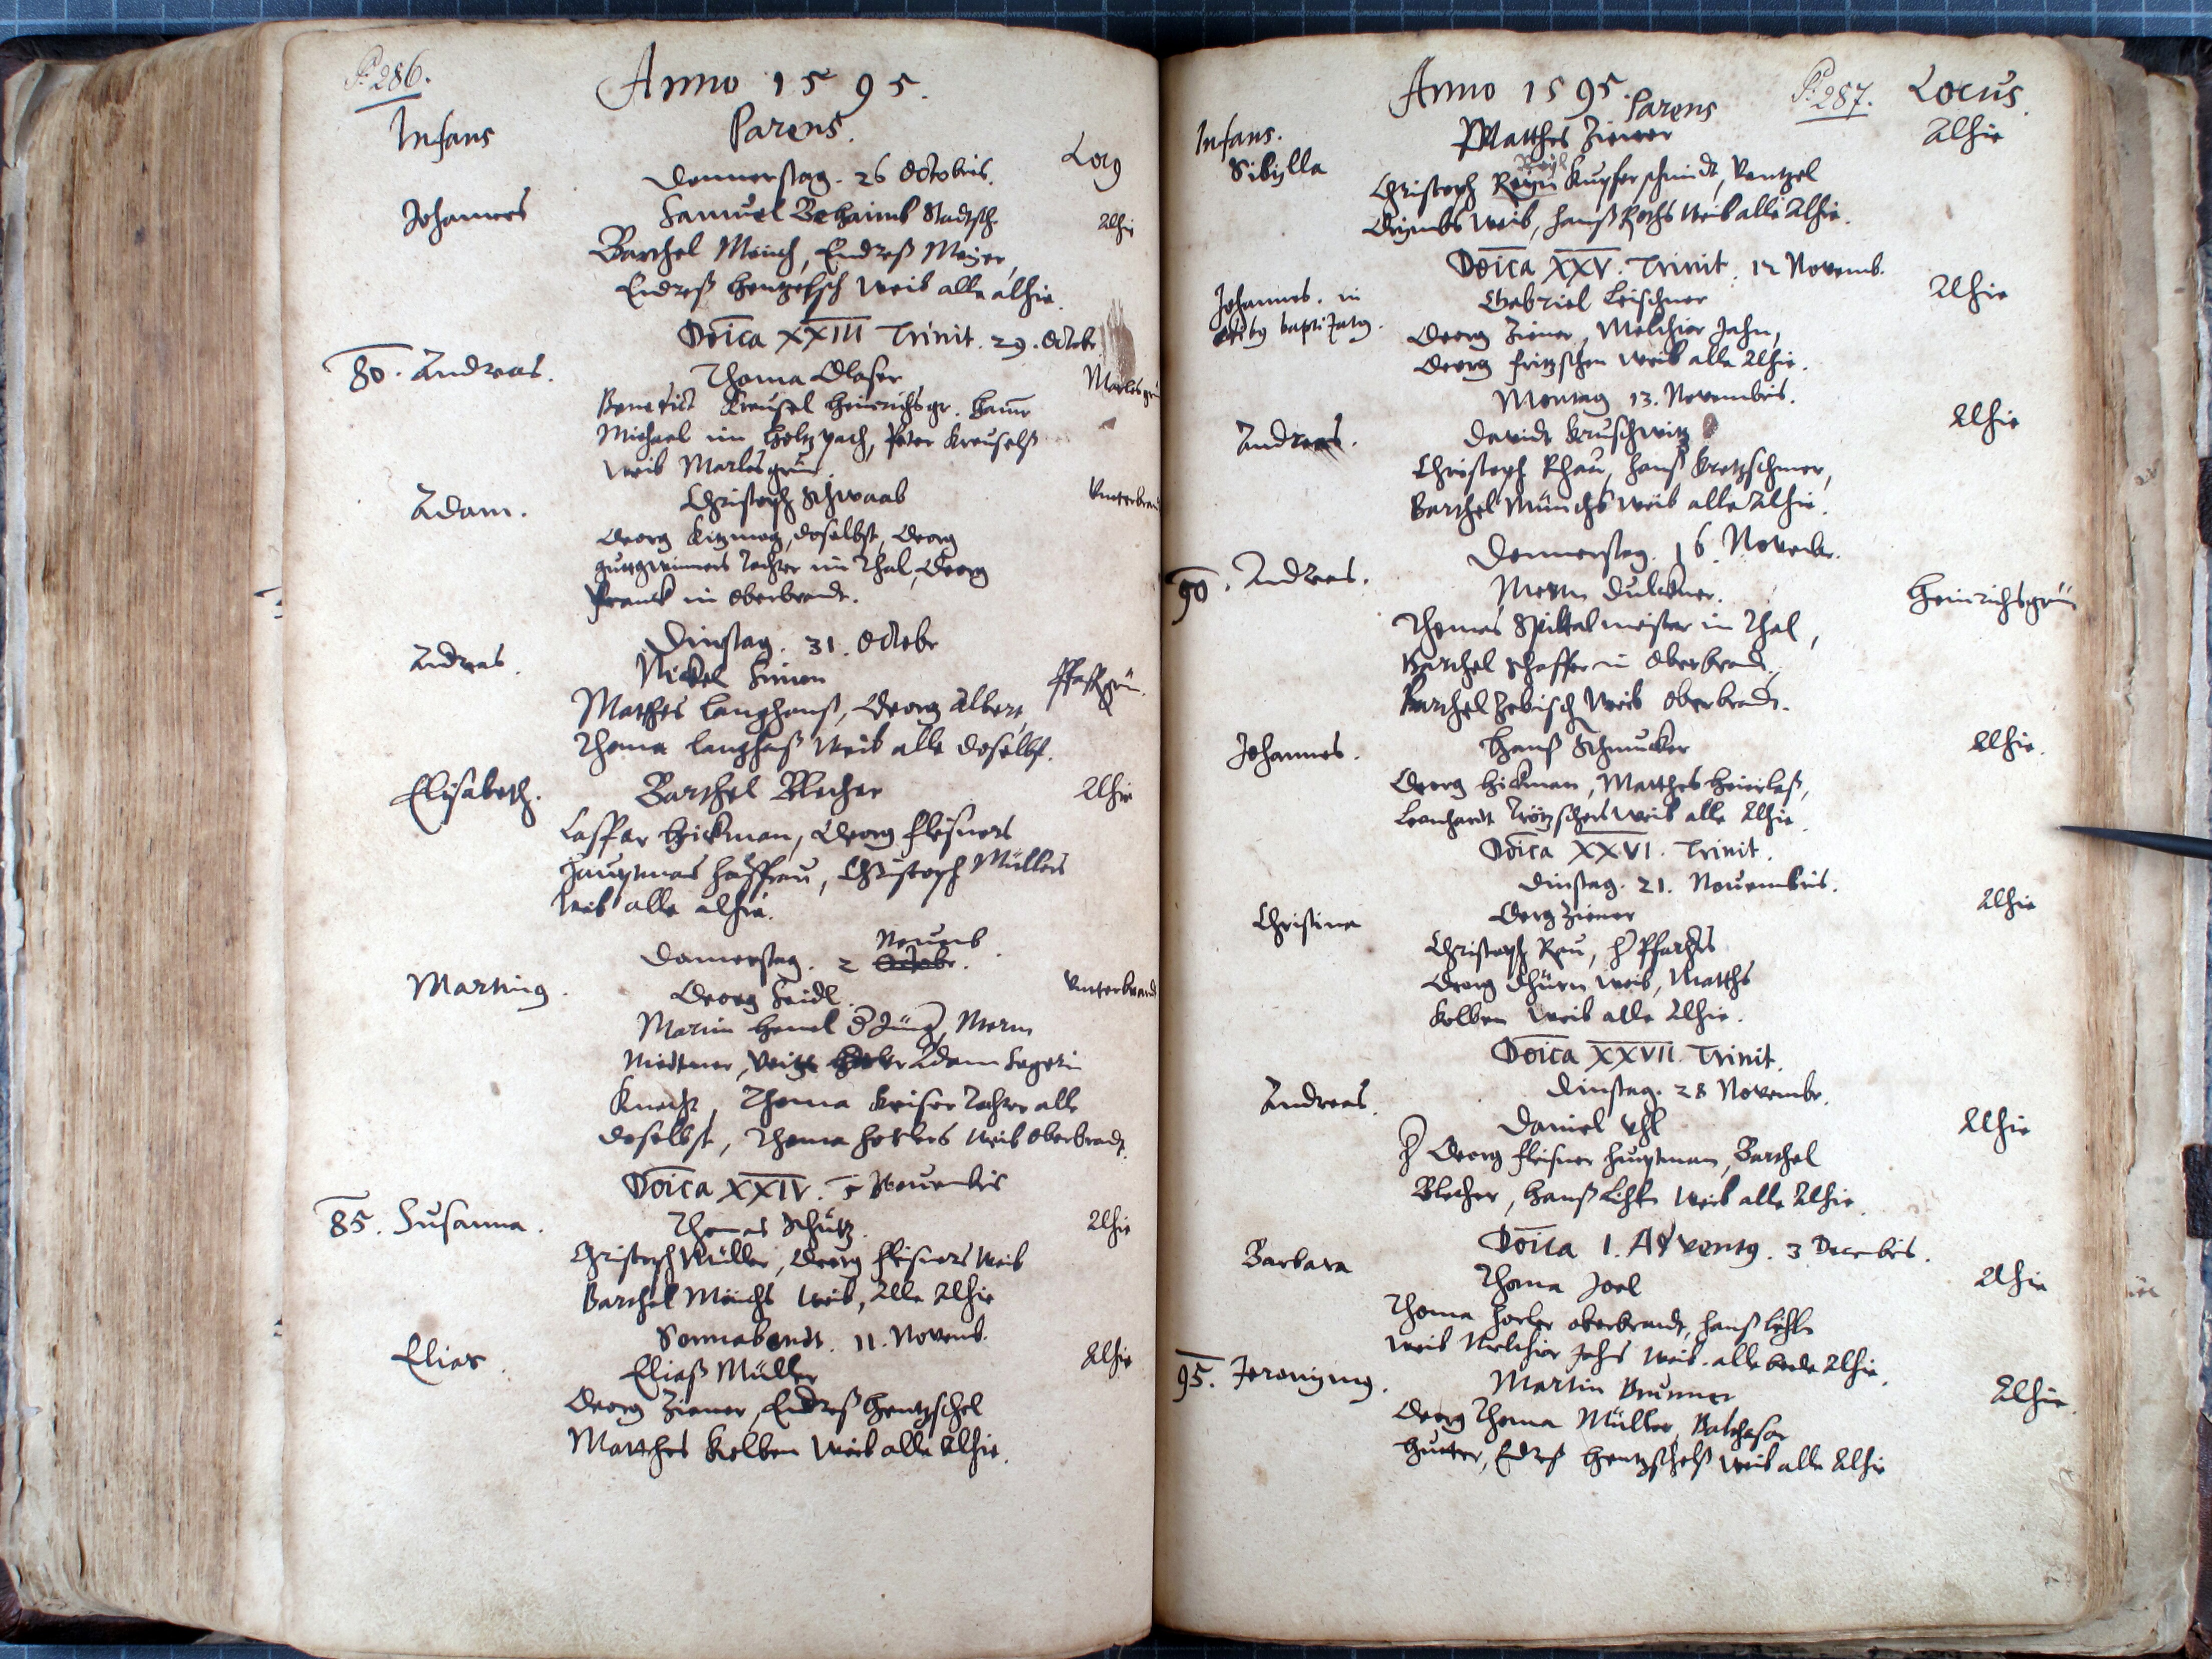 P. 286.
Anno 1595.
Infans
Parens.
Loc9
Donnerstag. 26 Octobris.
Johannes
Samuel Behaimb Stadtsch.
Alhie
Barthel Münch, Endreß Meyer,
Endreß Hentzelsch Weib alle alhie.
Doica XXIII Trinit. 29. Octobr.
80. Andreas.
Thoma Glaser
Marlesgrün
Benedict Kreusel Heinrichsgr.
Michael im Holtzpach, Peter Kreuselß
Weib Marlesgrün.
Adam.
Christoph Schwaab
Unterbrand
Georg, doselbst, Georg
Tochter im Thal, Georg
Franck in Oberbrandt.
Dinstag. 31. Octobr
Andreas.
Nickel Simon
Pfaffgrün.
Matthes Langhanß, Georg Albert,
Thoma Langhanß Weib alle doselbst.
Elisabeth.
Barthel Blecher
Alhie
Casspar Hickman, Georg Fleisners
Hauptmans Haußfrau, Christoph Müllers
Weib alle alhie.
Novemb
Donnerstag. 2 Octobr.
Martin9.
Georg Seidl.
Unterbrandt
Martin Hemel d Jüng, Merten
Adam
Knecht, Thoma Keiser Tochter alle
doselbst, Thoma Weib Oberbrandt.
Doica XXIV. 5 Novembris
85. Susanna.
Thomas Schütz.
Alhie
Christoph Müller, Georg Fleisners Weib
Barthel Münchs Weib, Alle Alhie
Sonnabendt. 11. Novemb.
Elias.
Eliaß Müller
Alhie
Georg Ziener, Endreß Hentzschel
Matthes Kolben Weib alle Alhie.
Anno 1595.
P. 287.
Locus
Infans.
Parens
Sibylla
Matthes Ziener
Alhie
Christoph Kupferschmidt, Wentzel
Weib, Hanß Kochs Weib alle Alhie.
Doica XXV. Trinit. 12 Novemb.
Johannes. in
Gabriel Leischner
Alhie
baptizat9.
Georg Ziener, Melchior Jahn,
Georg Fritzschen Weib alle Alhie.
Montag 13. Novembris.
Andreas.
Davidt Kruschwitz
Alhie
Christoph Rhau, Hanß Kretzschmer,
Barthel Münchs Weib alle Alhie.
Donnerstag. 16. Novembr.
90. Andreas.
Merten Dulckner.
Heinrichsgrün
Thomas Spittalmeister im Thal,
Barthel Schaffer in Oberbrandt,
Barthel Zebisch Weib Oberbrandt.
Johannes.
Hanß Schmucker
Alhie.
Georg Hickman, Matthes Heierlaß,
Leonhardt Trötzschers Weib alle Alhie.
Doica XXVI. Trinit.
Dinstag. 21. Novembris.
Christina
Georg Ziener
Alhie
Christoph Rau, H Pfarhers
Georg Weib, Matthes
Kolben Weib alle Alhie.
Doica XXVII. Trinit.
Dinstag. 28 Novembr.
Andreas.
Daniel Uhl
Alhie
H Georg Fleisner Hauptman, Barthel
Blecher, Hanß Weib alle Alhie.
Doica I. Advent9. 3 Decembris.
Barbara
Thoma Joel
Alhie
Thoma Oberbrandt, Hanß
Weib Melchior Jahns Weib. alle beede Alhie.
95. Jeronymus.
Martin Brunner
Alhie.
Georg Thoma Müller, Balthasar
Hutter, Endreß Hentzschels Weib alle Alhie